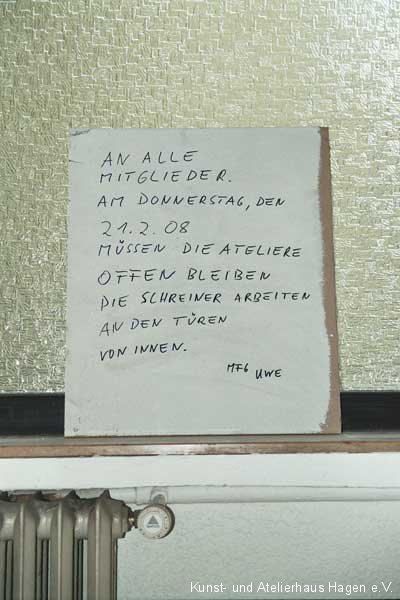 AN ALLE
MITGLIEDER.
AM DONNERSTAG, DEN
21.2.08
MÜSSEN DIE ATELIERE
OFFEN BLEIBEN
DIE SCHREINER ARBEITEN
AN DEN TÜREN
VON INNEN.
MFG UWE
Kunst- und Atelierhaus Hagen e.V.